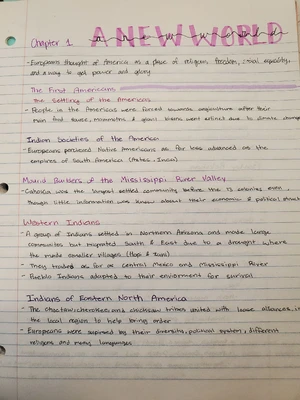 Chapter 1 A NEW WORLD
- Europeans thought of America as a place of religious freedom, social equality,
and a way to get power and glory
The First Americans
The Settling of the Americas
- People in the Americas were forced towards agriculture after their
main food source, mammoths & giant bisons went extinct due to climate
Indian Societies of the America
- Europeans percieved Native Americans as far less advanced as the
empires of South America (Aztec, Inca)
Mound Builders of the Mississippi River Valley
- Cahokia was the largest settled community before the 13 colonies even
though little information was know about their economic & political
Western Indians
- A group of Indians settled in Northern Arizona and made large
communities but migrated South & East due to a draught where
the made smaller villages (Hopi & Zuni)
- They traded as far as central Mexico and Mississippi River
- Pueblo Indians adapted to their enviorment for survial
Indians of Eastern North America
- The Choctaw, Cherokee, and Chickisaw tribes united with loose alliances in
the local region to help bring order
- Europeans were suprised by their diversity, political system, different
religons and many languages